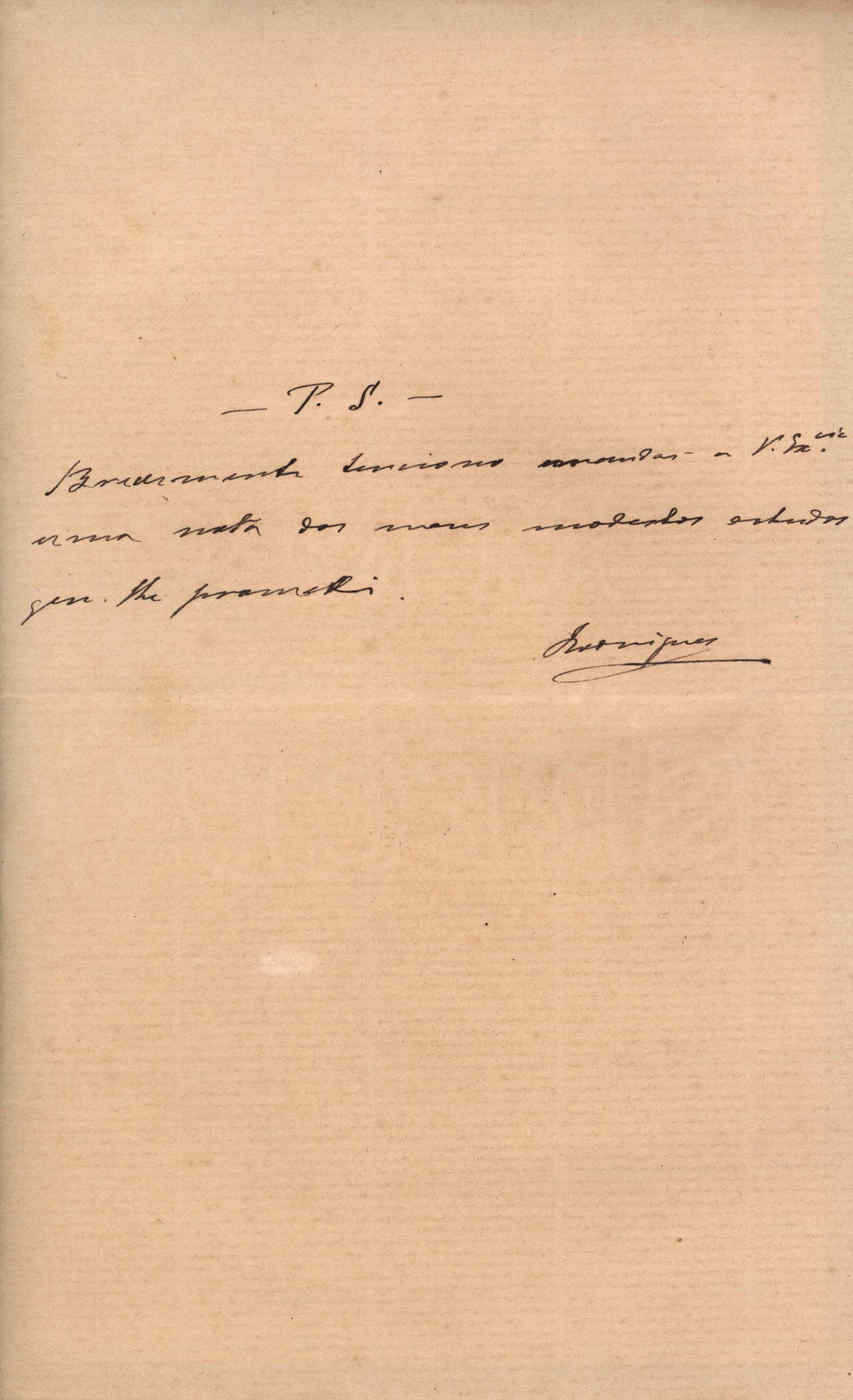 — P. S. —
Brevemente tenciono mandar a V. Ex.cia
uma nota dos meus modestos estudos
que lhe prometti.
Rodrigues